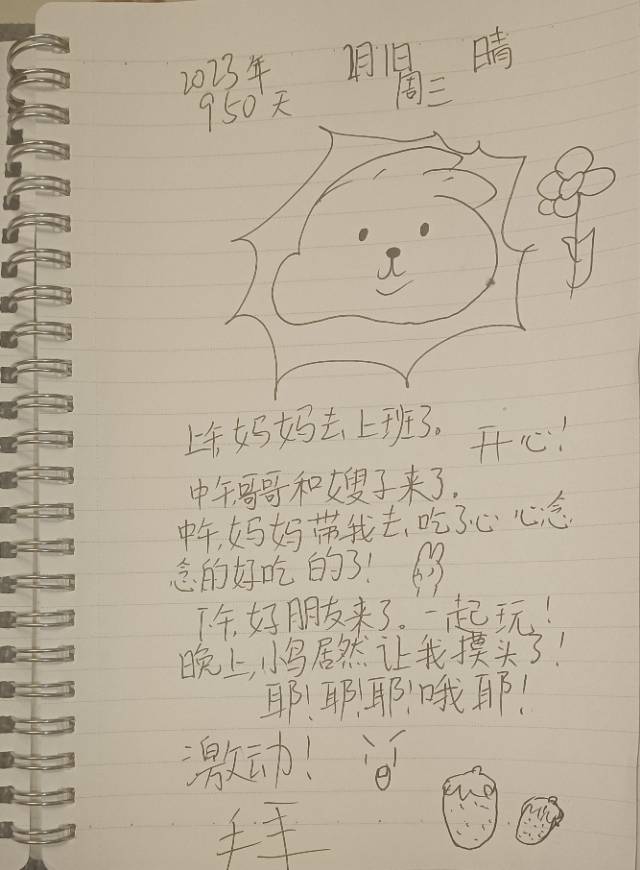 2023年 2月1日 晴
950天 周三
上午,妈妈去上班了。 开心!
中午,哥哥和嫂子来了。
中午,妈妈带我去,吃了心心念
念的好吃的了!
下午,好朋友来了。一起玩!
晚上,小鸟居然让我摸头了!
耶!耶!耶!哦耶!
激动!
拜